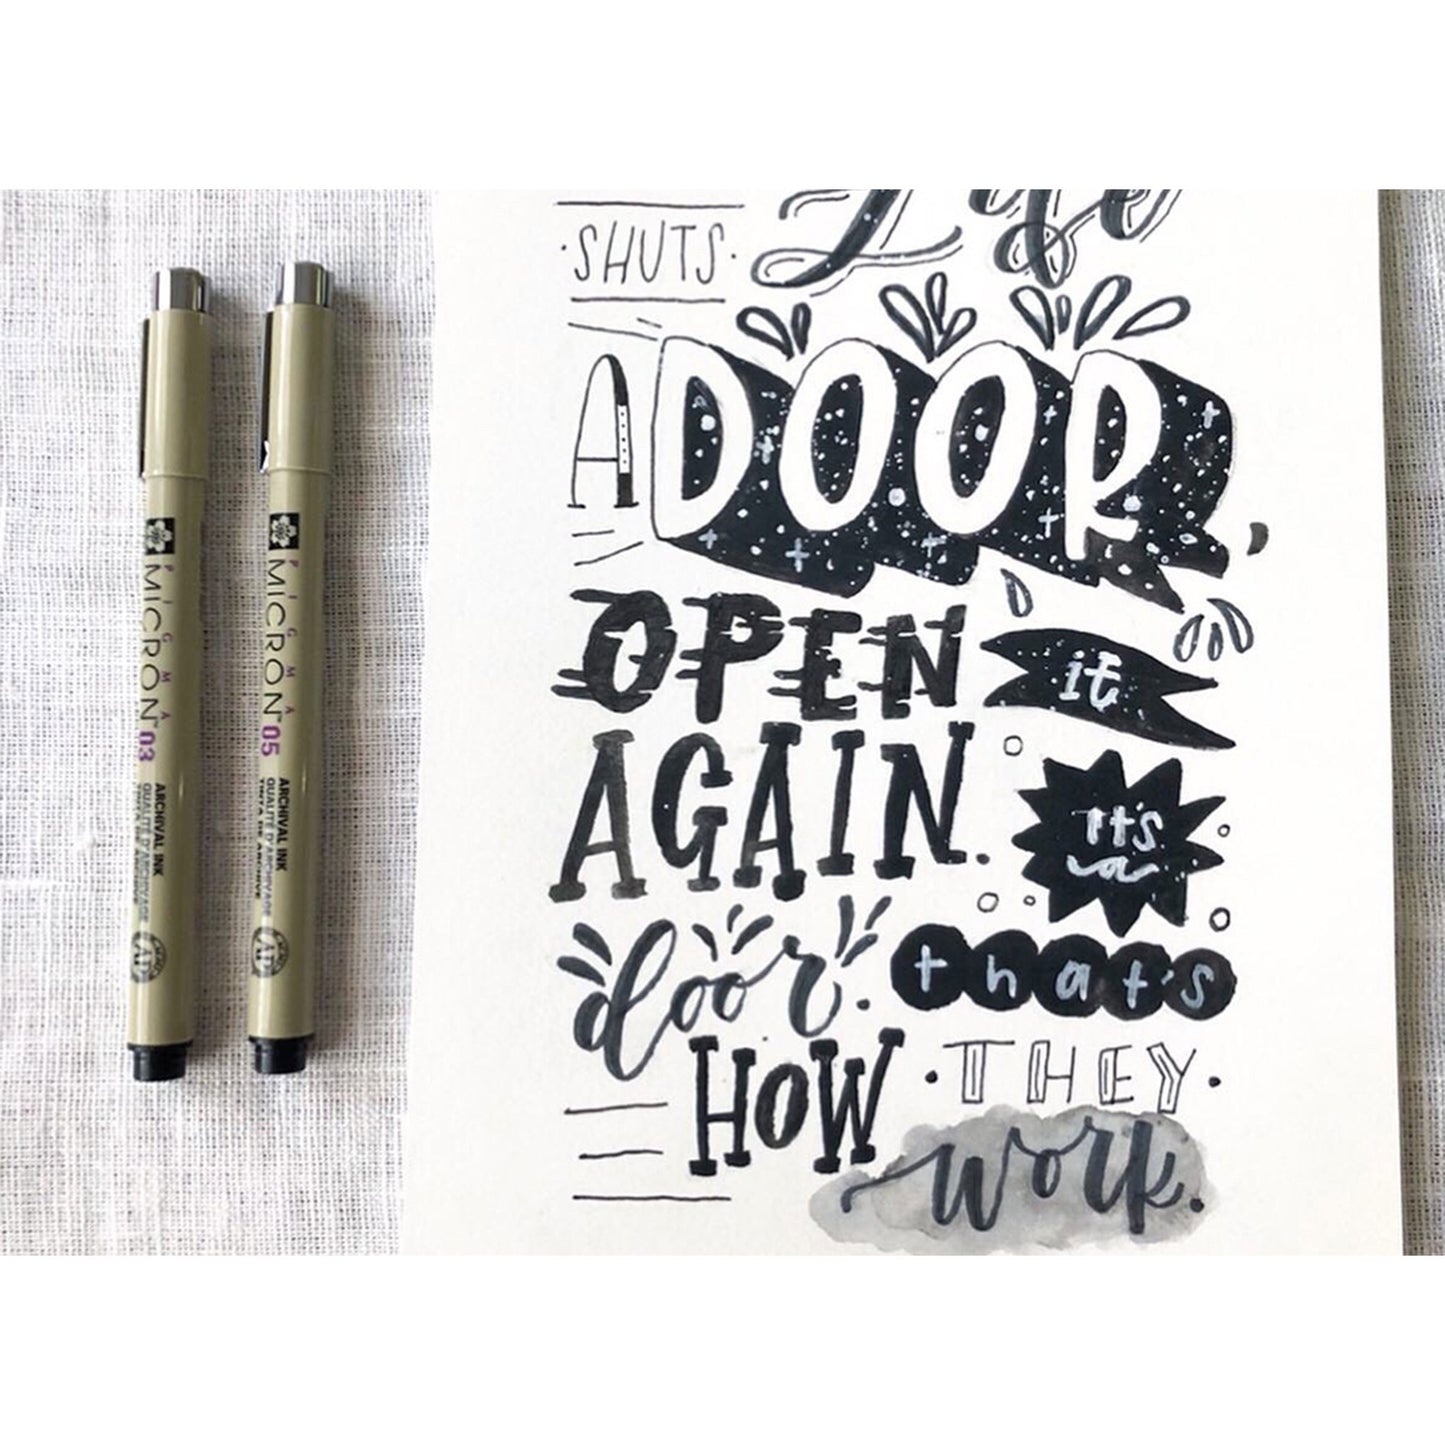 Life
·SHUTS·
A DOOR
OPEN it
AGAIN. It's a
door. that's
HOW ·THEY·
work.
PIGMA
MICRON 03
ARCHIVAL INK
QUALITÉ D'ARCHIVAGE
PIGMA
MICRON 05
ARCHIVAL INK
QUALITÉ D'ARCHIVAGE